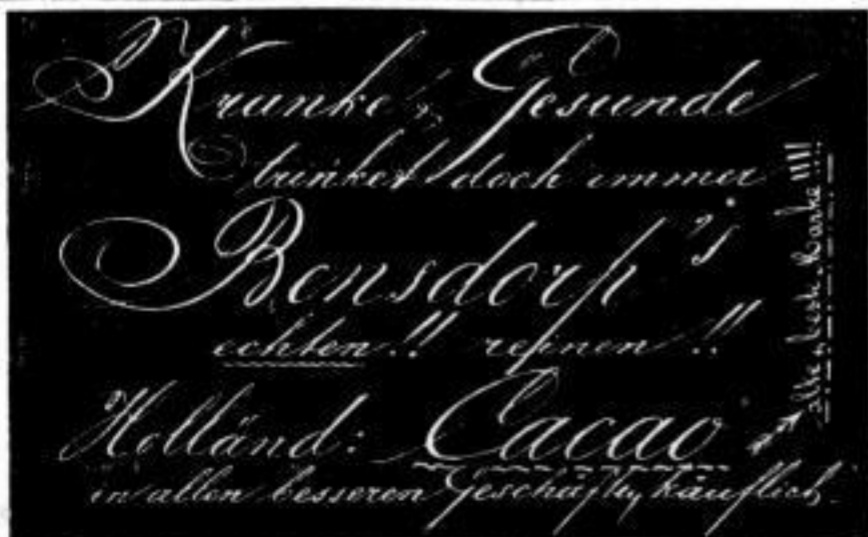 Kranke & Gesunde
trinket doch immer
Bensdorp's
echten!! reinen!!
Holländ: Cacao
in allen besseren Geschäften käuflich.
alte & beste Marke!!!!